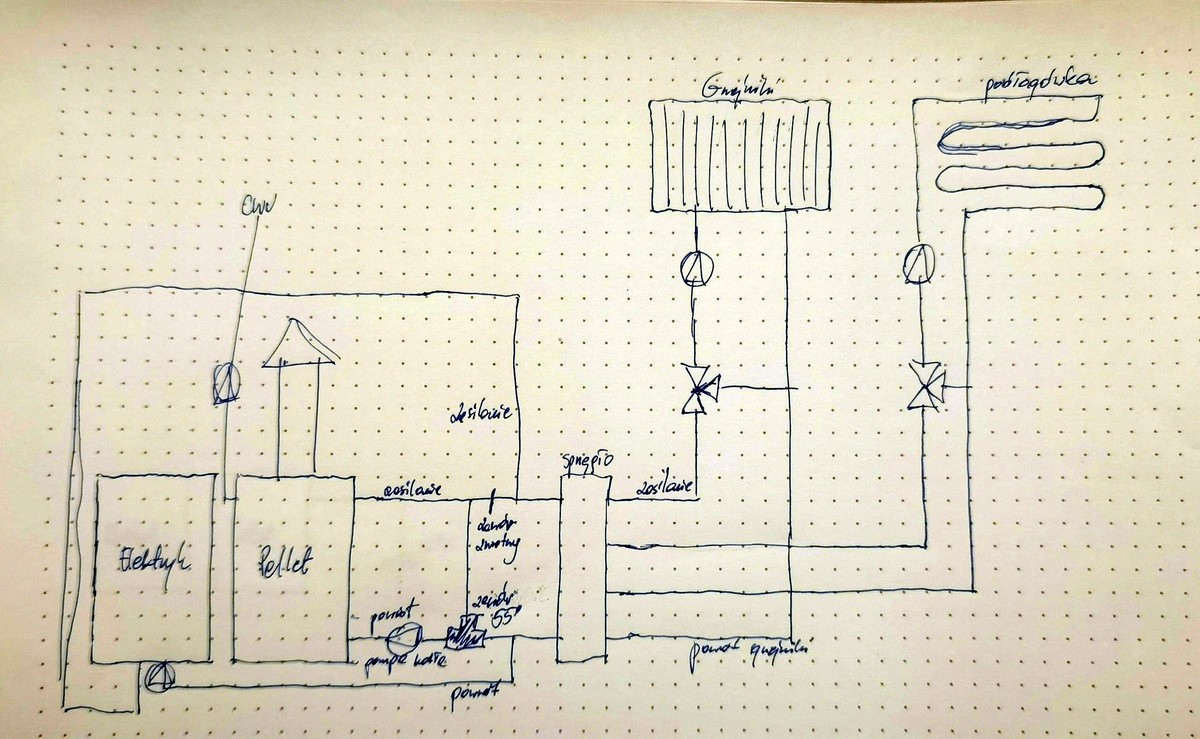 Grzejniki
podłogówka
CWU
zasilanie
sprzęgło
zasilanie
zasilanie
zawór
zwrotny
Elektryk
Pellet
powrót
zawór
55°
pompa kotła
powrót grzejniki
powrót